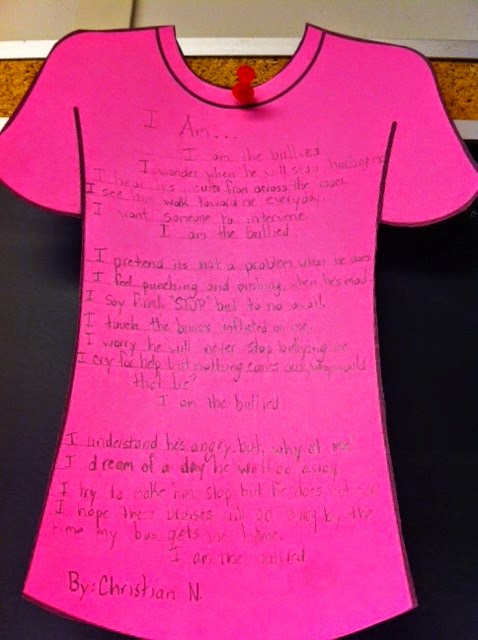 I Am...
I am the bullied
I wonder when he will stop
I hear his insults from across the room.
I see him walk toward me everyday.
I want someone to intervene
I am the bullied
I pretend its not a problem what he does
I feel punching and pushing when he's mad
I say firmly "STOP" but to no avail.
I touch the bruises inflicted on me.
I worry he will never stop bullying me
I cry for help but nothing comes out, why would
that be?
I am the bullied
I understand he's angry, but, why at me?
I dream of a day he will go away.
I try to make him stop, but he does not
I hope these bruises will go away by the
time my bus gets me home.
I am the bullied
By: Christian N.